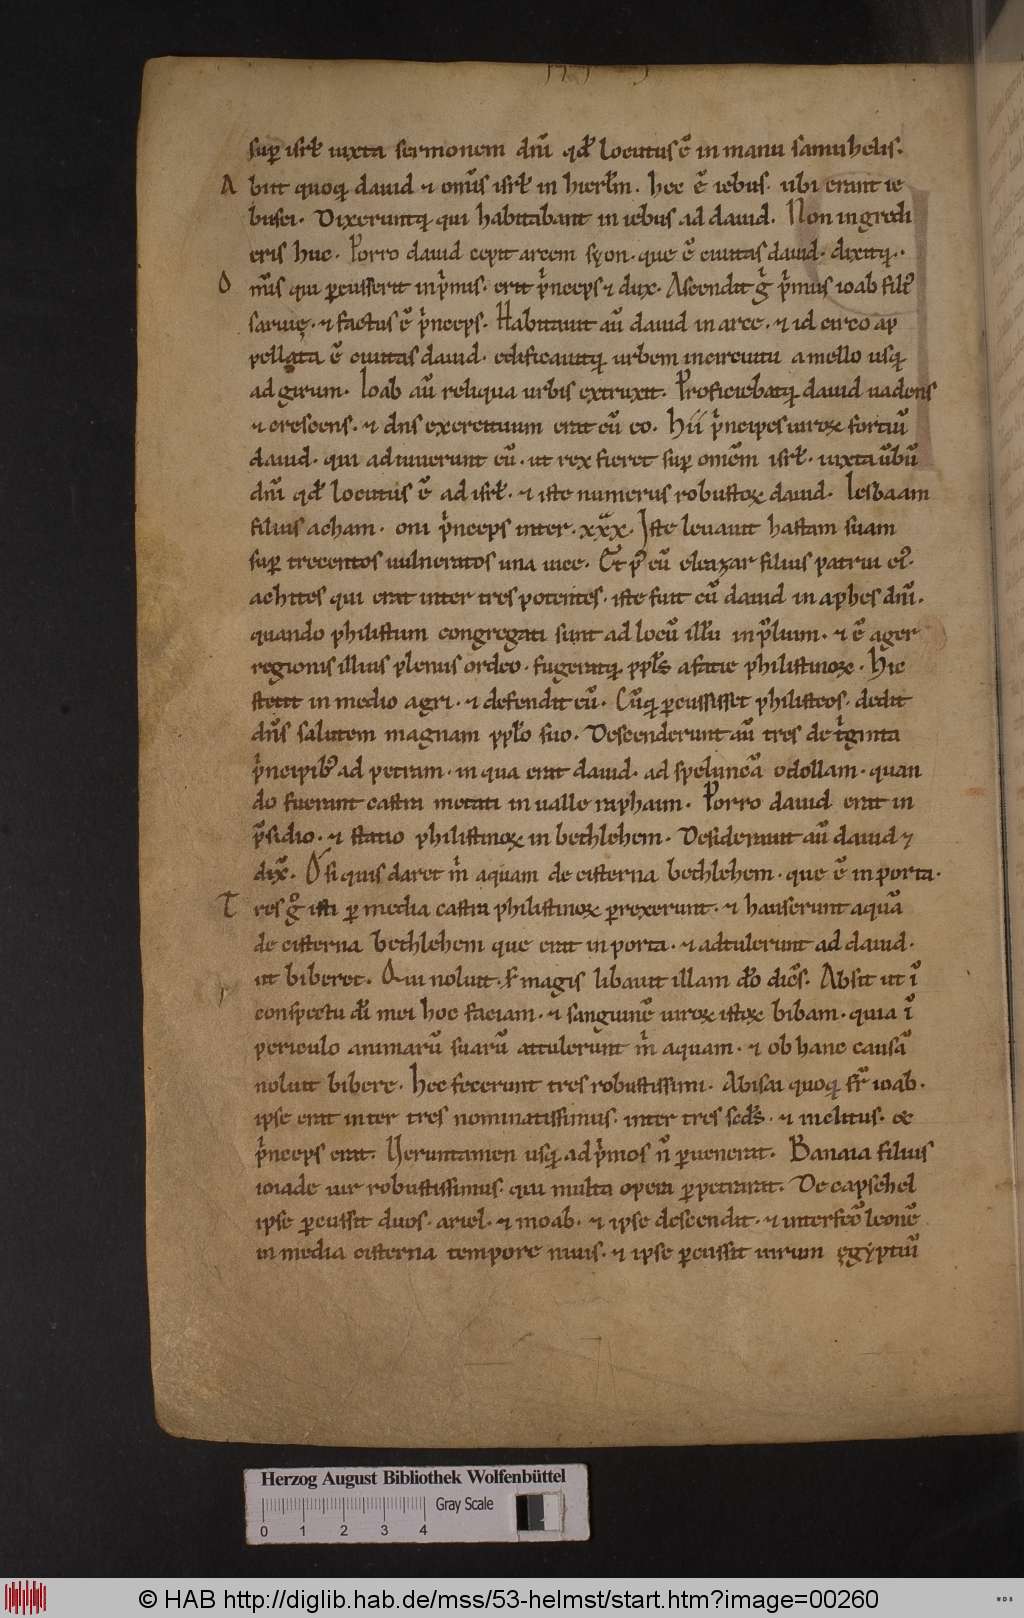 sup isrl̄ iuxta sermonem dnī qđ locutus ē in manu samuhelis.
Abiit quoq; dauid ⁊ om̄is isrl̄ in hierlm̄. hec ē iebus. ubi erant ie
busei. Dixeruntq; qui habitabant in iebus ad dauid. Non ingredi
eris huc. Porro dauid cepit arcem syon. que ē ciuitas dauid. dixitq;.
Om̄is qui ꝑcusserit inp̄mis. erit p̄nceps ⁊ dux. Ascendit g̊ p̄mus ioab fili᷒
saruię. ⁊ factus ē p̄nceps. Habitauit aū dauid in arce. ⁊ id circo ap
pellata ē ciuitas dauid. edificauitq; urbem incircuitu a mello usq;
ad girum. Ioab aū reliqua urbis extruxit. Proficiebatq; dauid uadens
⁊ crescens. ⁊ dns exercituum erat cū eo. Hii p̄ncipes uiroꝝ fortiū
dauid. qui adiuuerunt eū. ut rex fieret sup omēm isrl̄. iuxta ūbū
dnī qđ locutus ē ad isrl̄. ⁊ iste numerus robustoꝝ dauid. Iesbaam
filius acham. oni p̄nceps inter. xxx. Iste leuauit hastam suam
sup trecentos uulneratos una uice. Et p᷒ eū eleazar filius patrui ei᷒.
achites qui erat inter tres potentes. iste fuit cū dauid in aphes dnī.
quando philistiim congregati sunt ad locū illū in p̄lium. ⁊ ē ager
regionis illius plenus ordeo. fugeratq; ppl̄s a facie philistinoꝝ. Hic
stetit in medio agri. ⁊ defendit eū. Cūq; ꝑcussisset philisteos. dedit
dn̄s salutem magnam ppl̄o suo. Descenderunt aū tres de t̄ginta
p̄ncipib᷒ ad petram. in qua erat dauid. ad speluncā odollam. quan
do fuerant castra metati in ualle raphaim. Porro dauid erat in
p̄sidio. ⁊ statio philistinoꝝ in bethlehem. Desiderauit aū dauid ⁊
dix̄. O si quis daret m̄ aquam de cisterna bethlehem. que ē in porta.
Tres g̊ isti ꝑ media castra philistinoꝝ ꝑrexerunt. ⁊ hauserunt aquā
de cisterna bethlehem que erat in porta. ⁊ adtulerunt ad dauid.
ut biberet. Qui noluit. s; magis libauit illam dn̄o dicēs. Absit ut ī
conspectu dī mei hoc faciam. ⁊ sanguinē uiroꝝ istoꝝ bibam. quia ī
periculo animarū suarū attulerunt m̄ aquam. ⁊ ob hanc causā
noluit bibere. Hec fecerunt tres robustissimi. Abisai quoq; fr̄ ioab.
ipse erat inter tres nominatissimus. inter tres scd̄s. ⁊ inclitus. &
p̄nceps erat. Ueruntamen usq; ad p̄mos n̄ ꝑuenerat. Banaia filius
ioiade uir robustissimus. qui multa opera ꝑpetrarat. De capsehel
ipse ꝑcussit duos. ariel. ⁊ moab. ⁊ ipse descendit. ⁊ interfec̄ leonē
in media cisterna tempore niuis. ⁊ ipse ꝑcussit uirum ęgyptiū
Herzog August Bibliothek Wolfenbüttel
Gray Scale
0 1 2 3 4
© HAB http://diglib.hab.de/mss/53-helmst/start.htm?image=00260